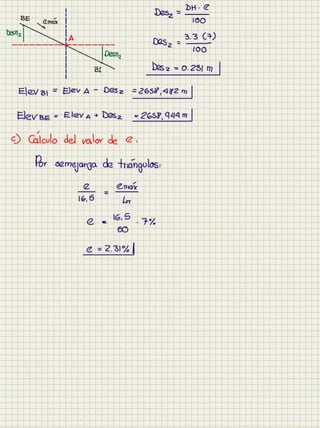 BE
emáx
Desn2
A
Desn2
BI
Des2 = DH. e / 100
Des2 = 3.3 (7) / 100
Des2 = 0.231 m
Elev BI = Elev A - Des2 = 2658,482 m
Elev BE = Elev A + Des2 = 2658,944 m
c) Cálculo del valor de e.
Por semejanza de triángulos:
e / 16,5 = emáx / LT
e = 16.5 / 50 . 7%
e = 2.31%